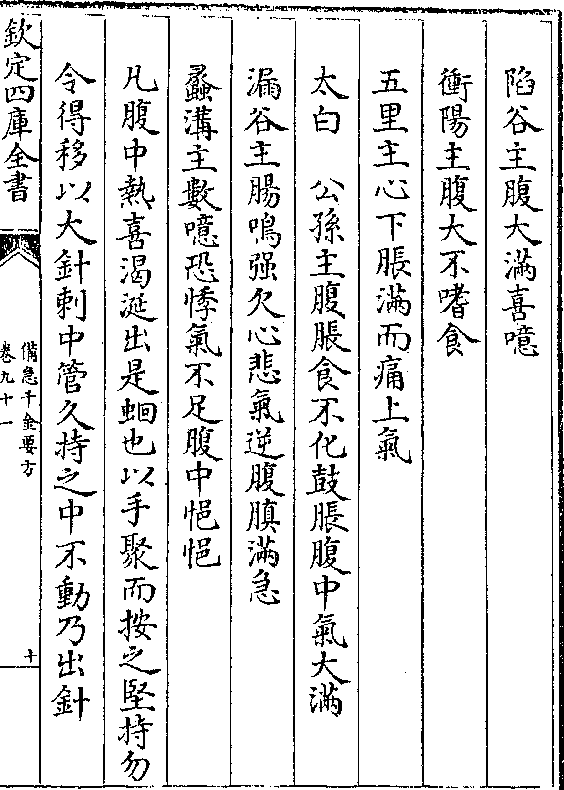 陷谷主腹大滿喜噫
衝陽主腹大不嗜食
五里主心下脹滿而痛上氣
太白　公孫主腹脹食不化鼓脹腹中氣大滿
漏谷主腸鳴强欠心悲氣逆腹䐜滿急
蠡溝主數噫恐悸氣不足腹中悒悒
凡腹中熱喜渴涎出是蛔也以手聚而按之堅持勿
令得移以大針刺中管久持之中不動乃出針
欽定四庫全書
備急千金要方
卷九十一
十